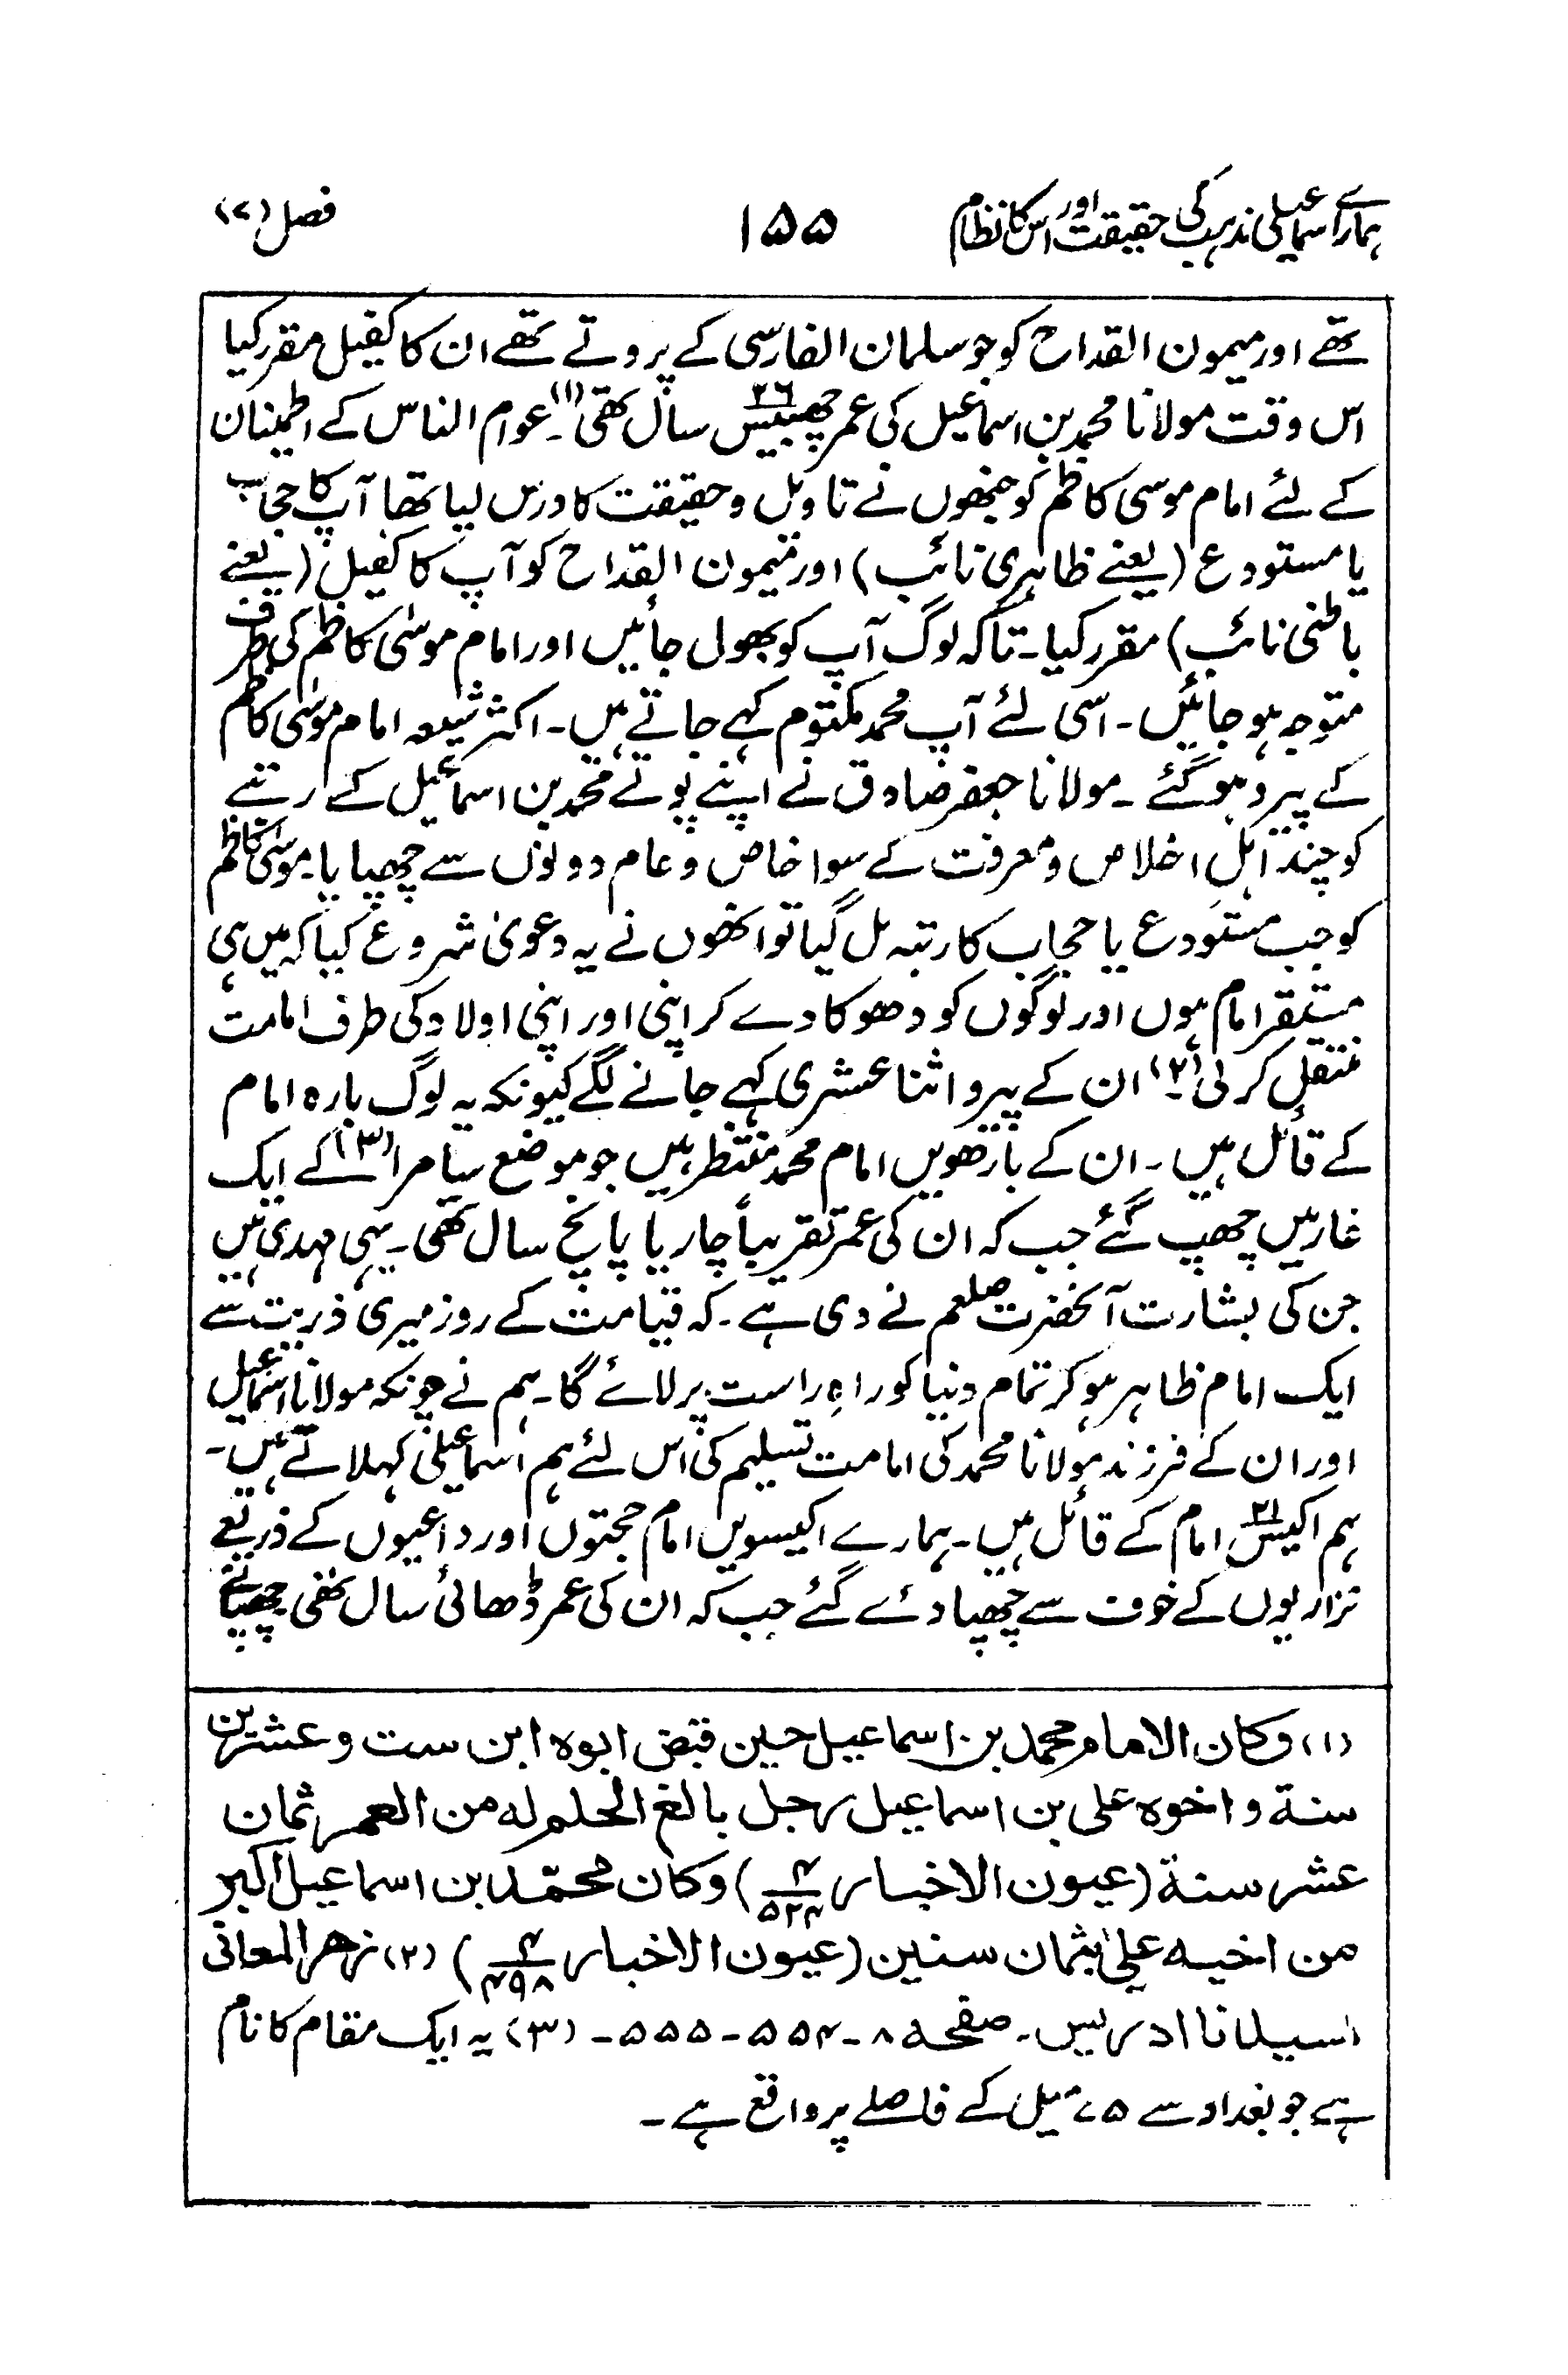 ہمارے اسماعیلی مذہب کی حقیقت اور اس کا نظام ۱۵۵ فصل (۷)
تھے اور میمون القداح کو جو سلمان الفارسی کے پروتے تھے ان کا کفیل مقرر کیا
اس وقت مولانا محمد بن اسماعیل کی عمر چھبیس ۲۶ سال تھی (۱)۔ عوام الناس کے اطمینان
کے لئے امام موسی کاظم کو جنھوں نے تاویل و حقیقت کا درس لیا تھا آپ کا حجاب
یا مستودع (یعنے ظاہری نائب) اور میمون القداح کو آپ کا کفیل (یعنے
باطنی نائب) مقرر کیا۔ تاکہ لوگ آپ کو بھول جائیں اور امام موسیٰ کاظم کی طرف
متوجہ ہو جائیں۔ اسی لئے آپ محمد مکتوم کہے جاتے ہیں۔ اکثر شیعہ امام موسیٰ کاظم
کے پیرو ہو گئے۔ مولانا جعفر صادق نے اپنے پوتے محمد بن اسماعیل کے رتبے
کو چند اہلِ اخلاص و معرفت کے سوا خاص و عام دونوں سے چھپایا۔ موسیٰ کاظم
کو جب مستَودع یا حجاب کا رتبہ مل گیا تو انھوں نے یہ دعویٰ شروع کیا کہ میں ہی
مستقر امام ہوں اور لوگوں کو دھوکا دے کر اپنی اور اپنی اولاد کی طرف امامت
منتقل کر لی (۲)۔ ان کے پیرو اثنا عشری کہے جانے لگے کیونکہ یہ لوگ بارہ امام
کے قائل ہیں۔ ان کے بارھویں امام محمد منتظر ہیں جو موضع سامرا (۳) کے ایک
غار میں چھپ گئے جب کہ ان کی عمر تقریباً چار یا پانچ سال تھی۔ یہی مہدی ہیں
جن کی بشارت آنحضرت صلعم نے دی ہے۔ کہ قیامت کے روز میری ذریت سے
ایک امام ظاہر ہو کر تمام دنیا کو راہِ راست پر لائے گا۔ ہم نے چونکہ مولانا اسماعیل
اور ان کے فرزند مولانا محمد کی امامت تسلیم کی اس لئے ہم اسماعیلی کہلاتے ہیں۔
ہم اکیس ۲۱ امام کے قائل ہیں۔ ہمارے اکیسویں امام حجتوں اور داعیوں کے ذریعے
نزاریوں کے خوف سے چھپا دئے گئے جب کہ ان کی عمر ڈھائی سال تھی چھپانے
(۱) وکان الامام محمد بن اسماعیل حین قبض ابوہ ابن ست و عشرین
سنة و اخوہ علی بن اسماعیل رجل بالغ الحلم لہ من العمر ثمان
عشر سنة (عیون الاخبار ۴/۵۲۴) وکان محمّد بن اسماعیل اکبر
من اخیہ علیٰ بثمان سنین (عیون الاخبار ۴/۴۹۸) (۲) زھر المعانی
لسیدنا ادریس۔ صفحہ ۸۔۵۵۴۔۵۵۵۔ (۳) یہ ایک مقام کا نام
ہے جو بغداد سے ۷۵ میل کے فاصلے پر واقع ہے۔